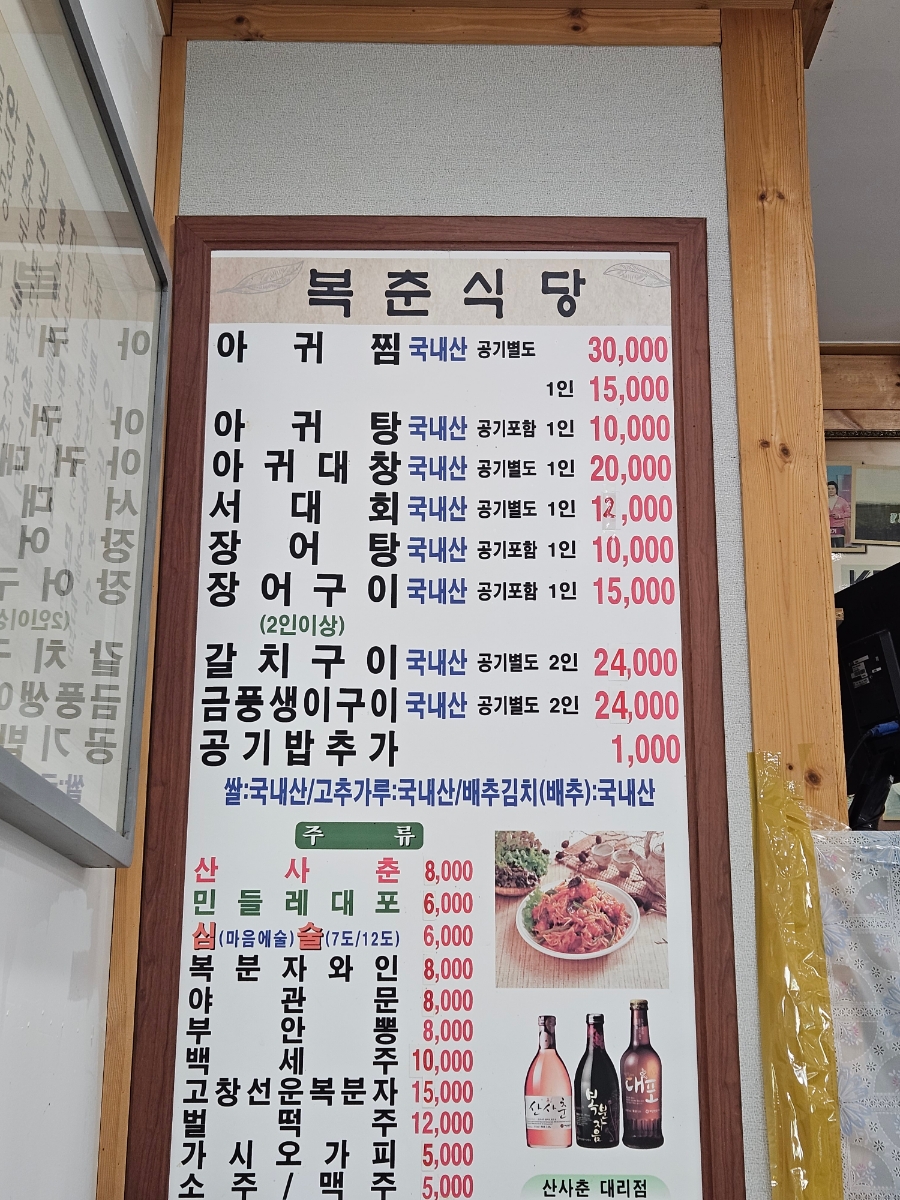 복춘식당
아귀찜 국내산 공기별도 30,000
1인 15,000
아귀탕 국내산 공기포함 1인 10,000
아귀대창 국내산 공기별도 1인 20,000
서대회 국내산 공기별도 1인 12,000
장어탕 국내산 공기포함 1인 10,000
장어구이 국내산 공기포함 1인 15,000
(2인이상)
갈치구이 국내산 공기별도 2인 24,000
금풍생이구이 국내산 공기별도 2인 24,000
공기밥추가 1,000
쌀:국내산/고추가루:국내산/배추김치(배추):국내산
주류
산사춘 8,000
민들레대포 6,000
심(마음에술)술(7도/12도) 6,000
복분자와인 8,000
야관문 8,000
부안뽕 8,000
백세주 10,000
고창선운복분자 15,000
벌떡주 12,000
가시오가피 5,000
소주/맥주 5,000
산사춘
복분자음
대포
산사춘 대리점